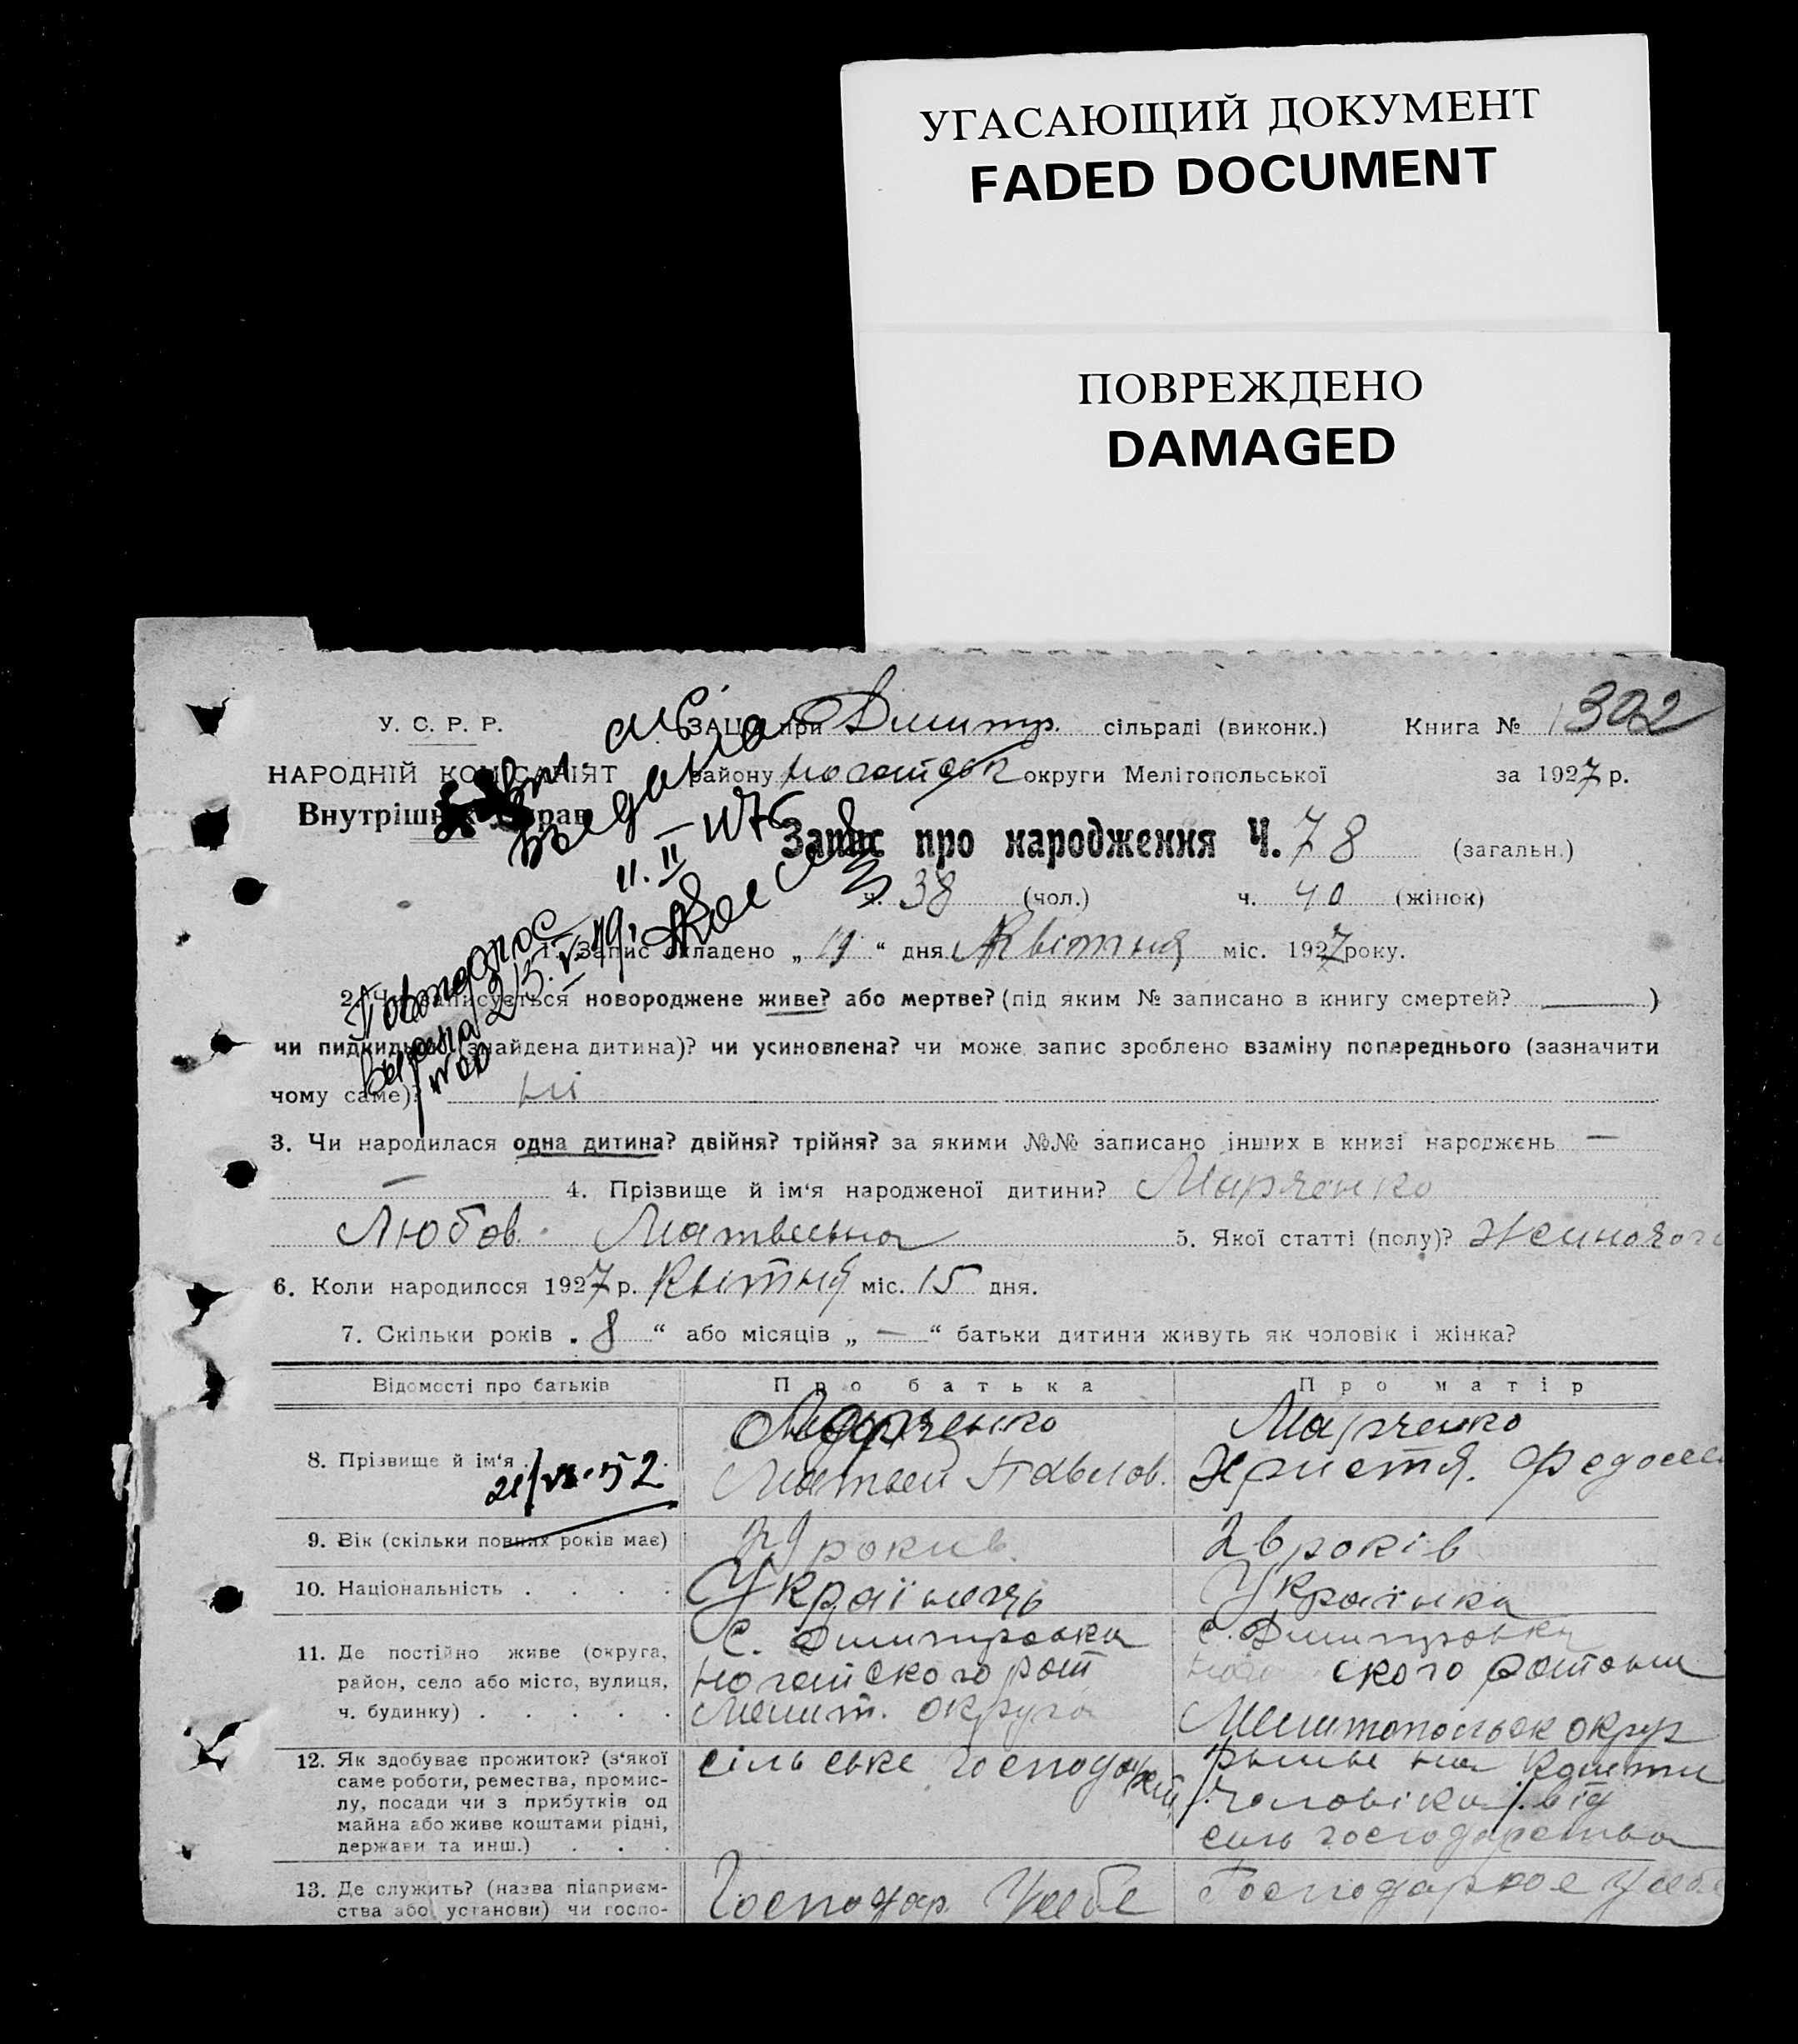 УГАСАЮЩИЙ ДОКУМЕНТ
FADED DOCUMENT
ПОВРЕЖДЕНО
DAMAGED
У. С. Р. Р.
НАРОДНІЙ КОМІСАРІЯТ
Внутрішніх Справ
ЗАЦС при Димитр. сільраді (виконк.) Книга № 302
району округи Мелітопольської за 1927 р.
11.II
Запис про народження Ч. 78 (загальн.)
ч. 38 (чол.) ч. 40 (жінок)
1. Запис складено „ “ дня Квітня міс. 1927 року.
2. Чи записується новороджене живе? або мертве? (під яким № записано в книгу смертей? —)
чи пидкидьок (знайдена дитина)? чи усиновлена? чи може запис зроблено взаміну попереднього (зазначити
чому саме)? ні
3. Чи народилася одна дитина? двійня? трійня? за якими №№ записано інших в книзі народжень —
— 4. Прізвище й ім‘я народженої дитини? Марченко
Любов Матвеевна 5. Якої статті (полу)? Жиночого
6. Коли народилося 1927 р. Квітня міс. 15 дня.
7. Скільки років „ 8 “ або місяців „ — “ батьки дитини живуть як чоловік і жінка?
Відомості про батьків Про батька Про матір
8. Прізвище й ім‘я
Марченко
Матвей Павлов.
Марченко
Христя
21/VI-52
9. Вік (скільки повних років має) 29 рокив. 26 років
10. Національність Українець Українка
11. Де постійно живе (округа,
район, село або місто, вулиця,
ч. будинку)
С. Димитровка
Ногайского рай
Мелит. округа
с. Димитровка
ского району
Мелитопольск округ
12. Як здобуває прожиток? (з‘якої
саме роботи, ремества, промис-
лу, посади чи з прибутків од
майна або живе коштами рідні,
держави та инш.)
сільське господар
на кошти
чоловіка від
сіль господарства
13. Де служить? (назва підприєм-
ства або установи) чи госпо-
Господар. у себе
у себе